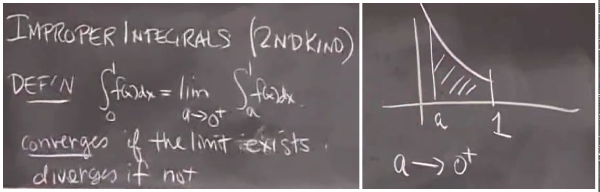 IMPROPER INTEGRALS (2ND KIND)
DEF'N ∫₀¹ f(x)dx = lim a→0⁺ ∫ₐ¹ f(x)dx.
converges if the limit exists.
diverges if not
a 1
a → 0⁺